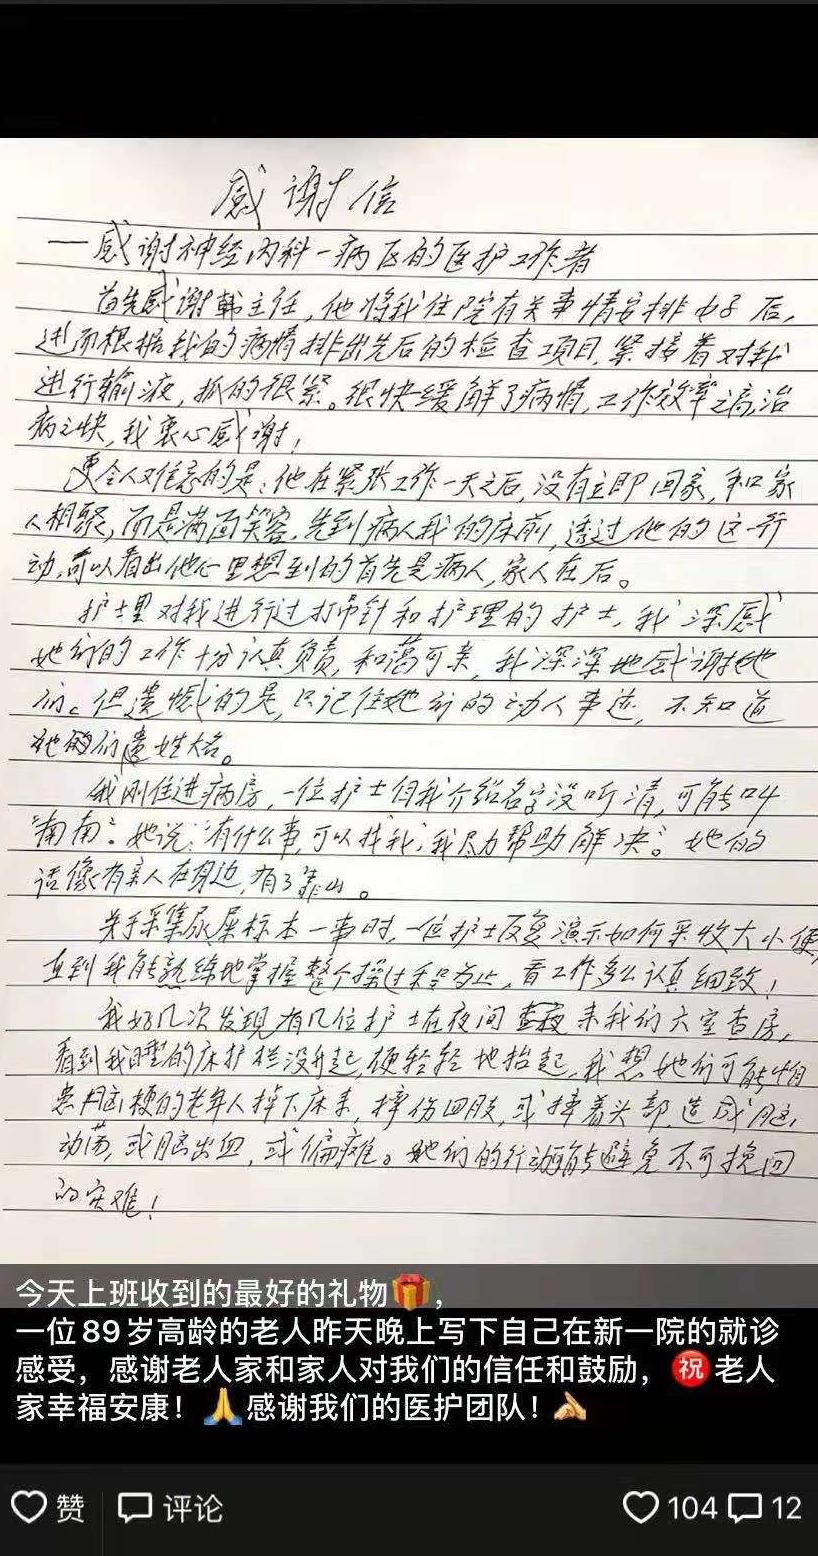 感谢信
一感谢神经内科一病区的医护工作者
首先感谢韩主任,他将我住院有关事情安排好后,
进而根据我的病情排出先后的检查项目,紧接着对我
进行输液,抓的很紧。很快缓解了病情,工作效率之高治
病之快,我衷心感谢!
更令人难忘的是:他在紧张工作一天之后,没有立即回家,和家
人相聚,而是满面笑容,先到病人我的床前,透过他的这一行
动,可以看出他心里想到的首先是病人,家人在后。
护士里对我进行过打吊针和护理的护士,我深感
她们的工作十分认真负责,和蔼可亲,我深深地感谢她
们。但遗憾的是,只记住她们的动人事迹,不知道
她们遗姓大名。
我刚住进病房,一位护士但我介绍名字没听清,可能叫
“南南”。她说:“有什么事,可以找我,我尽力帮助解决”。她的
话像有亲人在身边,有了靠山。
关于采集尿屎标本一事时,一位护士反复演示如何采收大小便,
直到我能熟练地掌握整个操过程为止,看工作多么认真细致!
我好几次发现有几位护士在夜间来我们六室查房,
看到我睡的床护栏没升起,便轻轻地抬起,我想她们可能怕
患脑梗的老年人掉下床来,摔伤四肢,或摔着头部,造成脑
动荡,或脑出血,或偏瘫。她们的行动能避免不可挽回
的灾难!
今天上班收到的最好的礼物🎁,
一位89岁高龄的老人昨天晚上写下自己在新一院的就诊
感受,感谢老人家和家人对我们的信任和鼓励,㊗️老人
家幸福安康!🙏感谢我们的医护团队!👏
赞 评论 104 12